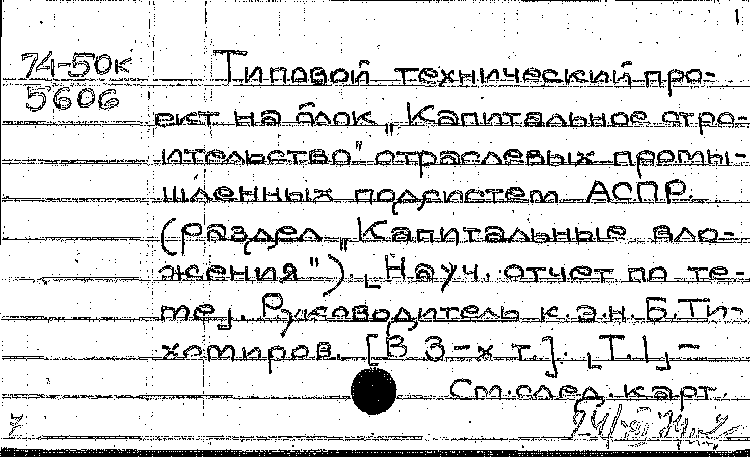 1
74-50к
5606
Типовой технический про-
ект на блок „Капитальное стро-
ительство" отраслевых промы-
шленных подсистем АСПР.
(раздел „Капитальные вло-
жения"). ⌊Науч. отчет по те-
ме⌋. Руководитель к.э.н. Б.Ти-
хомиров. [В 3-х т.]. ⌊Т.1⌋ —
См. след. карт.
7